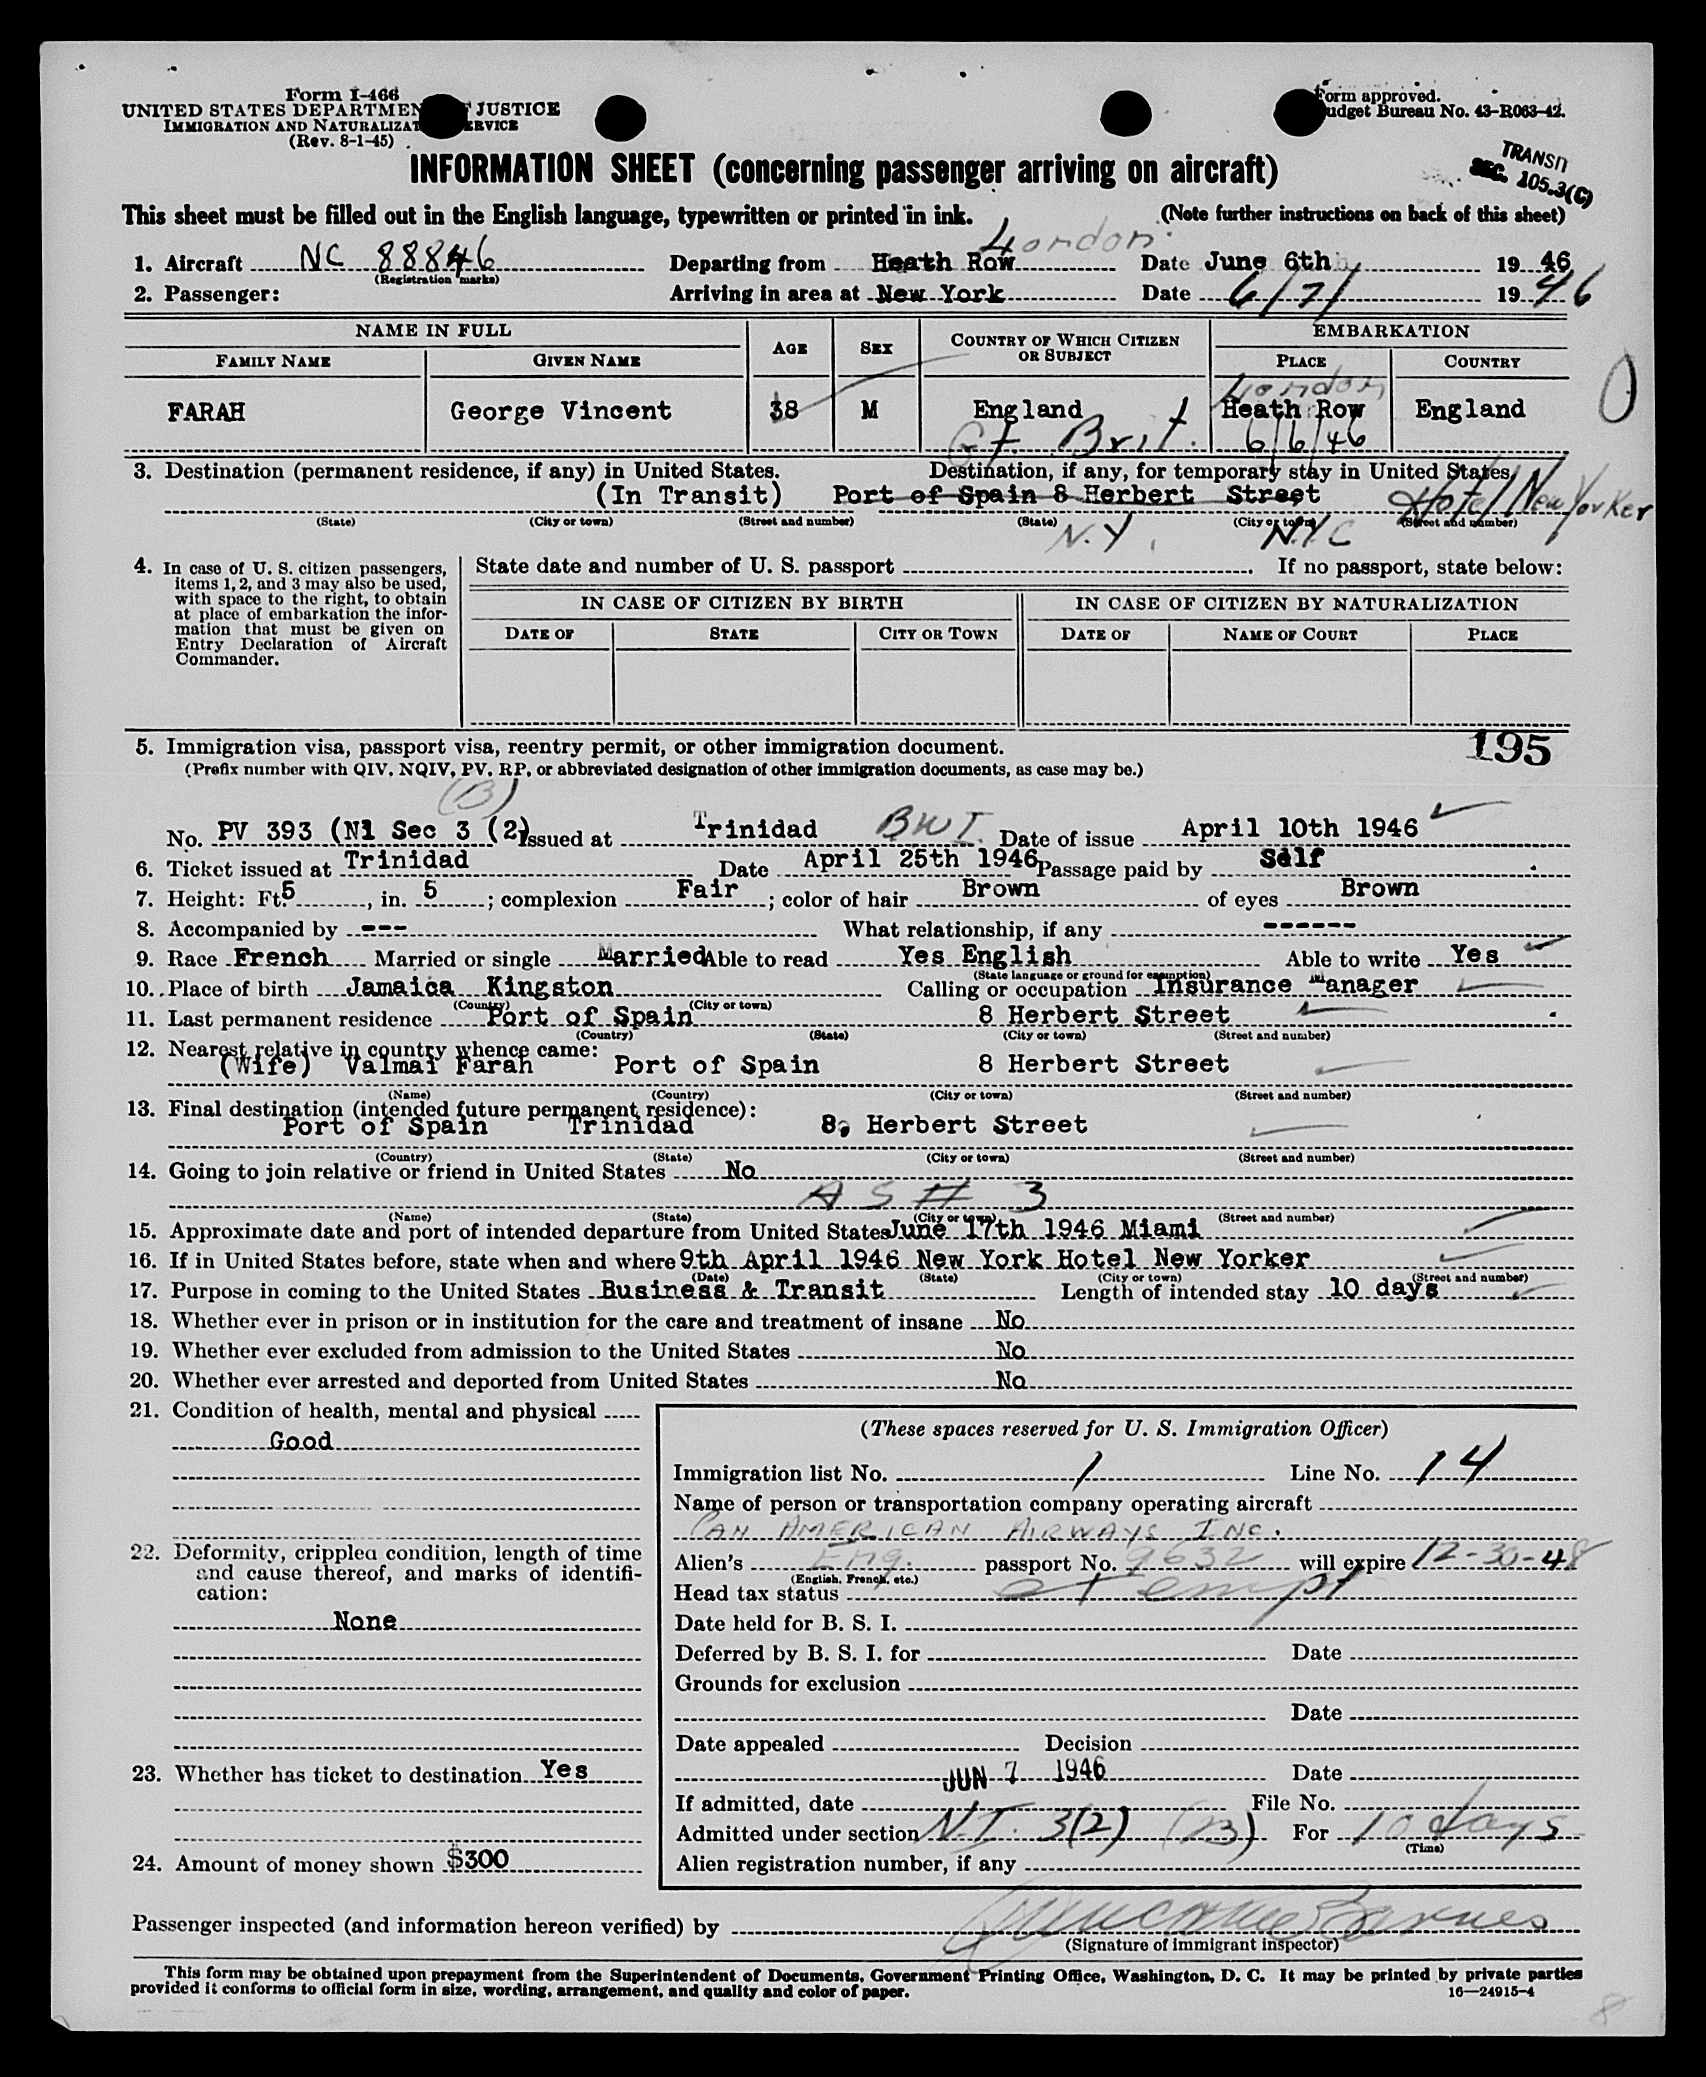 Form I-466
UNITED STATES DEPARTMENT OF JUSTICE
IMMIGRATION AND NATURALIZATION SERVICE
(Rev. 8-1-45)
Form approved.
Budget Bureau No. 43-R063-42.
TRANSIT
SEC. 105.3(C)
INFORMATION SHEET (concerning passenger arriving on aircraft)
This sheet must be filled out in the English language, typewritten or printed in ink. (Note further instructions on back of this sheet)
London
1. Aircraft NC 88846 Departing from Heath Row Date June 6th 1946
(Registration marks)
2. Passenger: Arriving in area at New York Date 6/7/ 1946
NAME IN FULL AGE SEX COUNTRY OF WHICH CITIZEN OR SUBJECT EMBARKATION
FAMILY NAME GIVEN NAME PLACE COUNTRY
London
FARAH George Vincent 38 M England Heath Row England
Gt. Brit. 6/6/46
3. Destination (permanent residence, if any) in United States. Destination, if any, for temporary stay in United States,
(In Transit) Port of Spain 8 Herbert Street Hotel New Yorker
(State) (City or town) (Street and number) (State) (City or town) (Street and number)
N.Y. N.Y.C
4. In case of U. S. citizen passengers, items 1, 2, and 3 may also be used, with space to the right, to obtain at place of embarkation the information that must be given on Entry Declaration of Aircraft Commander.
State date and number of U. S. passport . If no passport, state below:
IN CASE OF CITIZEN BY BIRTH IN CASE OF CITIZEN BY NATURALIZATION
DATE OF STATE CITY OR TOWN DATE OF NAME OF COURT PLACE
195
5. Immigration visa, passport visa, reentry permit, or other immigration document.
(Prefix number with QIV, NQIV, PV, RP, or abbreviated designation of other immigration documents, as case may be.)
(B)
No. PV 393 (NI Sec 3 (2) Issued at Trinidad BWI. Date of issue April 10th 1946
6. Ticket issued at Trinidad Date April 25th 1946 Passage paid by Self
7. Height: Ft. 5, in. 5; complexion Fair; color of hair Brown of eyes Brown
8. Accompanied by --- What relationship, if any ------
9. Race French Married or single Married Able to read Yes English Able to write Yes
(State language or ground for exemption)
10. Place of birth Jamaica Kingston Calling or occupation Insurance Manager
(Country) (City or town)
11. Last permanent residence Port of Spain 8 Herbert Street
(Country) (State) (City or town) (Street and number)
12. Nearest relative in country whence came:
(Wife) Valmai Farah Port of Spain 8 Herbert Street
(Name) (Country) (City or town) (Street and number)
13. Final destination (intended future permanent residence):
Port of Spain Trinidad 8, Herbert Street
(Country) (State) (City or town) (Street and number)
14. Going to join relative or friend in United States No
AS # 3
(Name) (State) (City or town) (Street and number)
15. Approximate date and port of intended departure from United States June 17th 1946 Miami
16. If in United States before, state when and where 9th April 1946 New York Hotel New Yorker
(Date) (State) (City or town) (Street and number)
17. Purpose in coming to the United States Business & Transit Length of intended stay 10 days
18. Whether ever in prison or in institution for the care and treatment of insane No
19. Whether ever excluded from admission to the United States No
20. Whether ever arrested and deported from United States No
21. Condition of health, mental and physical
Good
22. Deformity, crippled condition, length of time and cause thereof, and marks of identification:
None
23. Whether has ticket to destination Yes
24. Amount of money shown $300
(These spaces reserved for U. S. Immigration Officer)
Immigration list No. 1 Line No. 14
Name of person or transportation company operating aircraft
PAN AMERICAN AIRWAYS INC.
Alien's Eng. passport No. 9632 will expire 12-30-48
(English, French, etc.)
Head tax status exempt
Date held for B. S. I.
Deferred by B. S. I. for Date
Grounds for exclusion
Date
Date appealed Decision
JUN 7 1946 Date
If admitted, date File No.
Admitted under section N.I. 3(2) (B) For 10 days
(Time)
Alien registration number, if any
Passenger inspected (and information hereon verified) by
(Signature of immigrant inspector)
This form may be obtained upon prepayment from the Superintendent of Documents, Government Printing Office, Washington, D. C. It may be printed by private parties
provided it conforms to official form in size, wording, arrangement, and quality and color of paper. 16—24915-4
8